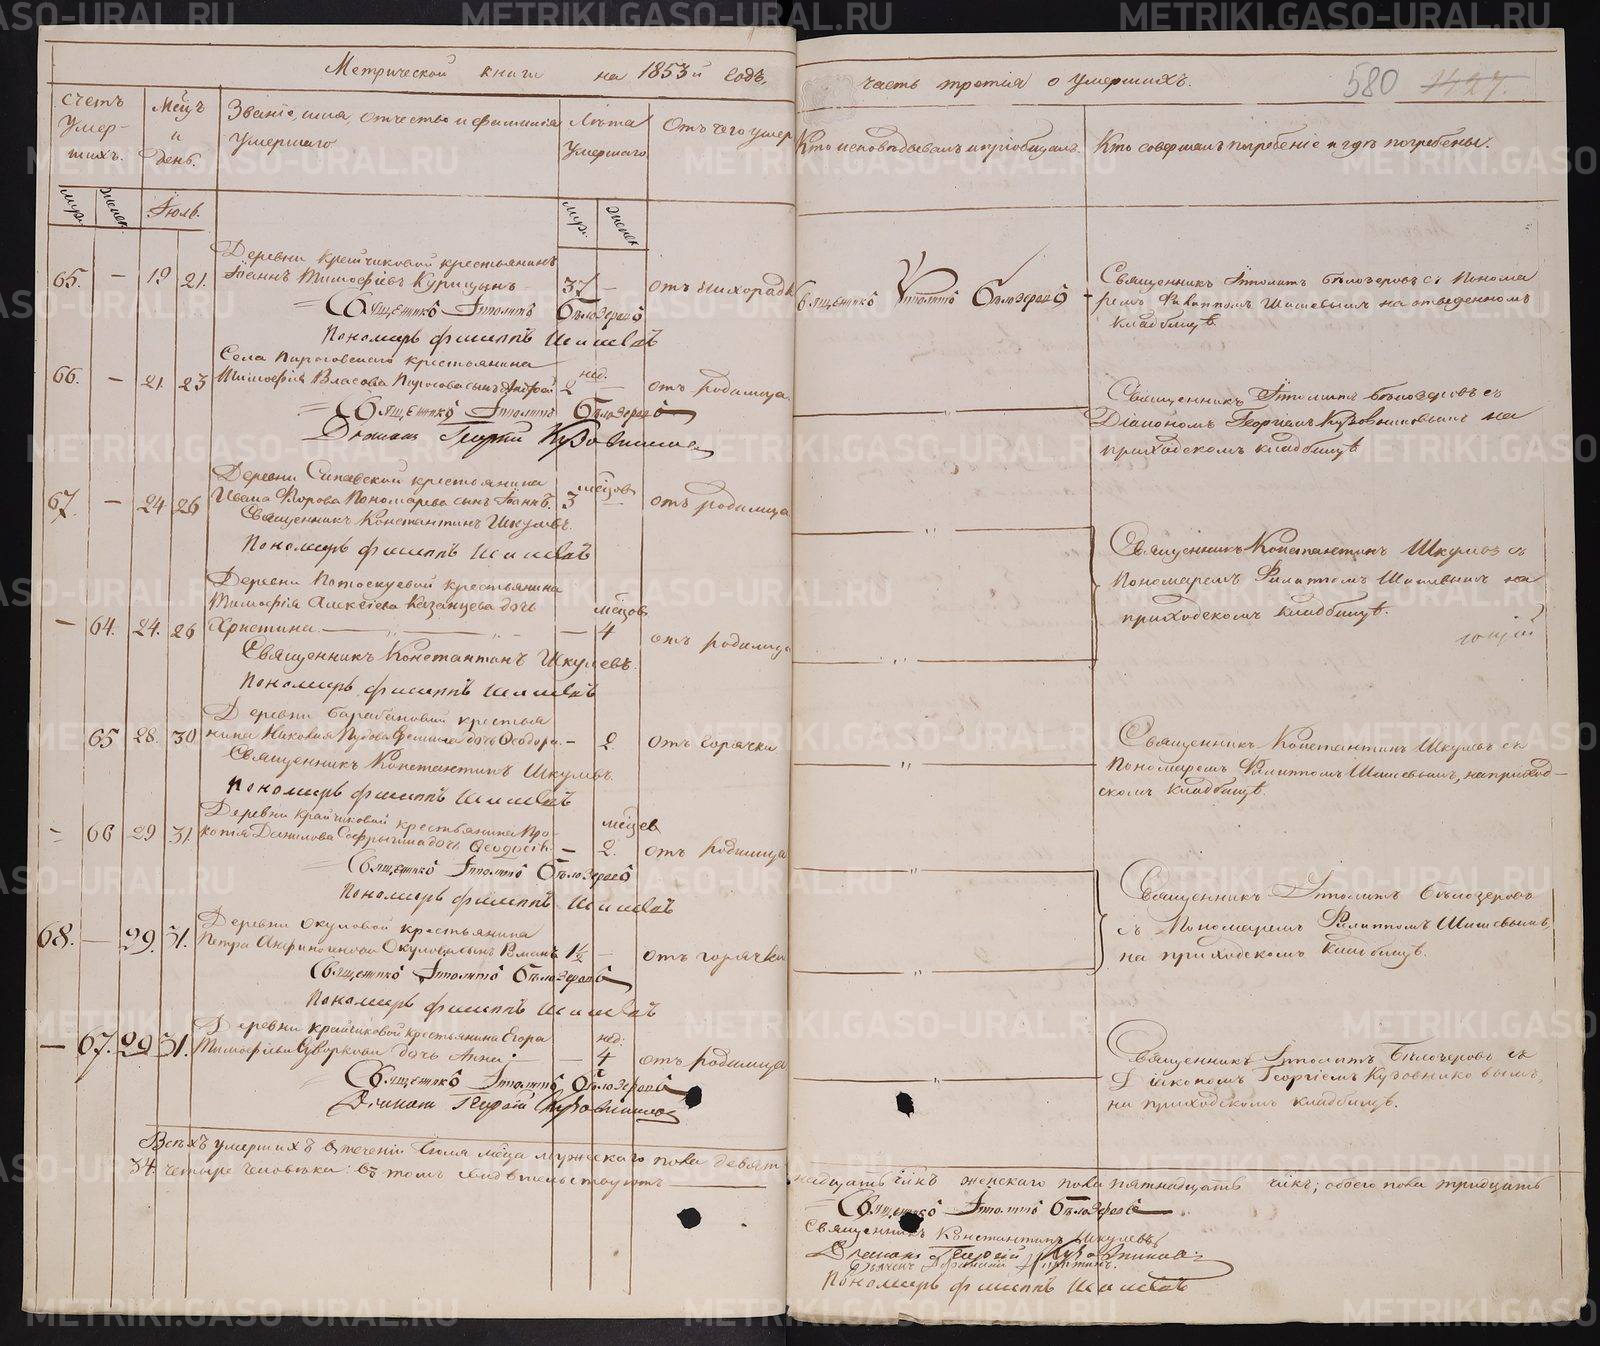 Метрической книги на 1853й годъ,
часть третія о умершихъ.
580
1427.
счетъ умер-шихъ.
Мѣцъ и день.
Званіе, имя отчество и фамилія умершаго
Лѣта умершаго
Отъ чего умер
Кто исповѣдывалъ и пріобщалъ.
Кто совершалъ погребеніе и гдѣ погребены.
муж. женск. Іюль. муж. женск
Деревни Крайчиковой крестьянинъ
65. — 19 21. Іоаннъ Тимофѣевъ Курицынъ 37 — отъ лихорадк
Священникъ Ипполитъ Бѣлозеровъ
Священникъ Ипполитъ Бѣлозеровъ съ Понома
ремъ Филиппомъ Шишевымъ на отведенномъ
кладбищѣ.
Священникъ Ипполитъ Бѣлозеровъ
Пономарь Филиппъ Шишевъ
Села Пироговскаго крестьянина
66. — 21. 23 Тимофея Власова Пирогова сынъ Андрей 2 нед. — отъ родимца
Священникъ Ипполитъ Бѣлозеровъ
Діаконъ Георгій Кузовниковъ
Священникъ Ипполитъ Бѣлозеровъ съ
Діакономъ Георгіемъ Кузовниковымъ на
приходскомъ кладбищѣ
Деревни Сипавской крестьянина
67. — 24 26 Ивана Флорова Пономарева сынъ Іоаннъ. 3 мѣцов — отъ родимца
Священникъ Константинъ Шкулевъ.
Пономарь Филиппъ Шишевъ
Священникъ Константинъ Шкулевъ съ
Пономаремъ Филиппомъ Шишевымъ на
приходскомъ кладбищѣ.
Деревни Потоскуевой крестьянина
Тимофея Алексѣева Казанцева дочь
— 64. 24. 26 Христина — 4 мѣцов отъ родимца
Священникъ Константинъ Шкулевъ.
Пономарь Филиппъ Шишевъ
Деревни Барабановой крестья
65 28. 30 нина Николая дочь Ѳеодора — 2 отъ горячки
Священникъ Константинъ Шкулевъ.
Пономарь Филиппъ Шишевъ
Священникъ Константинъ Шкулевъ съ
Пономаремъ Филиппомъ Шишевымъ, на приход-
скомъ кладбищѣ.
Деревни Крайчиковой крестьянина Про-
— 66 29 31. копія Данилова дочь Ѳеодосія — 2. мѣцев отъ родимца
Священникъ Ипполитъ Бѣлозеровъ
Пономарь Филиппъ Шишевъ
Деревни Окуловой крестьянина
68. — 29. 31. Петра Окулова сынъ Романъ 1½ — отъ горячки
Священникъ Ипполитъ Бѣлозеровъ
Пономарь Филиппъ Шишевъ
Священникъ Ипполитъ Бѣлозеровъ
съ Пономаремъ Филиппомъ Шишевымъ,
на приходскомъ кладбищѣ.
Деревни Крайчиковой крестьянина Егора
— 67. 29. 31. Тимофѣева Суворкова дочь Анна. — 4 нед: отъ родимца
Священникъ Ипполитъ Бѣлозеровъ
Діаконъ Георгій Кузовниковъ
Священникъ Ипполитъ Бѣлозеровъ съ
Діакономъ Георгіемъ Кузовниковымъ,
на приходскомъ кладбищѣ.
Всѣхъ умершихъ въ теченіи Іюля мѣца мужскаго пола девят
надцать члкъ женскаго пола пятнадцать члкъ; обоего пола тридцать
34. четыре человѣка: въ томъ свидѣтельствуютъ
Священникъ Ипполитъ Бѣлозеровъ
Священникъ Константинъ Шкулевъ
Діаконъ Георгій Кузовниковъ
Пономарь Филиппъ Шишевъ
METRIKI.GASO-URAL.RU